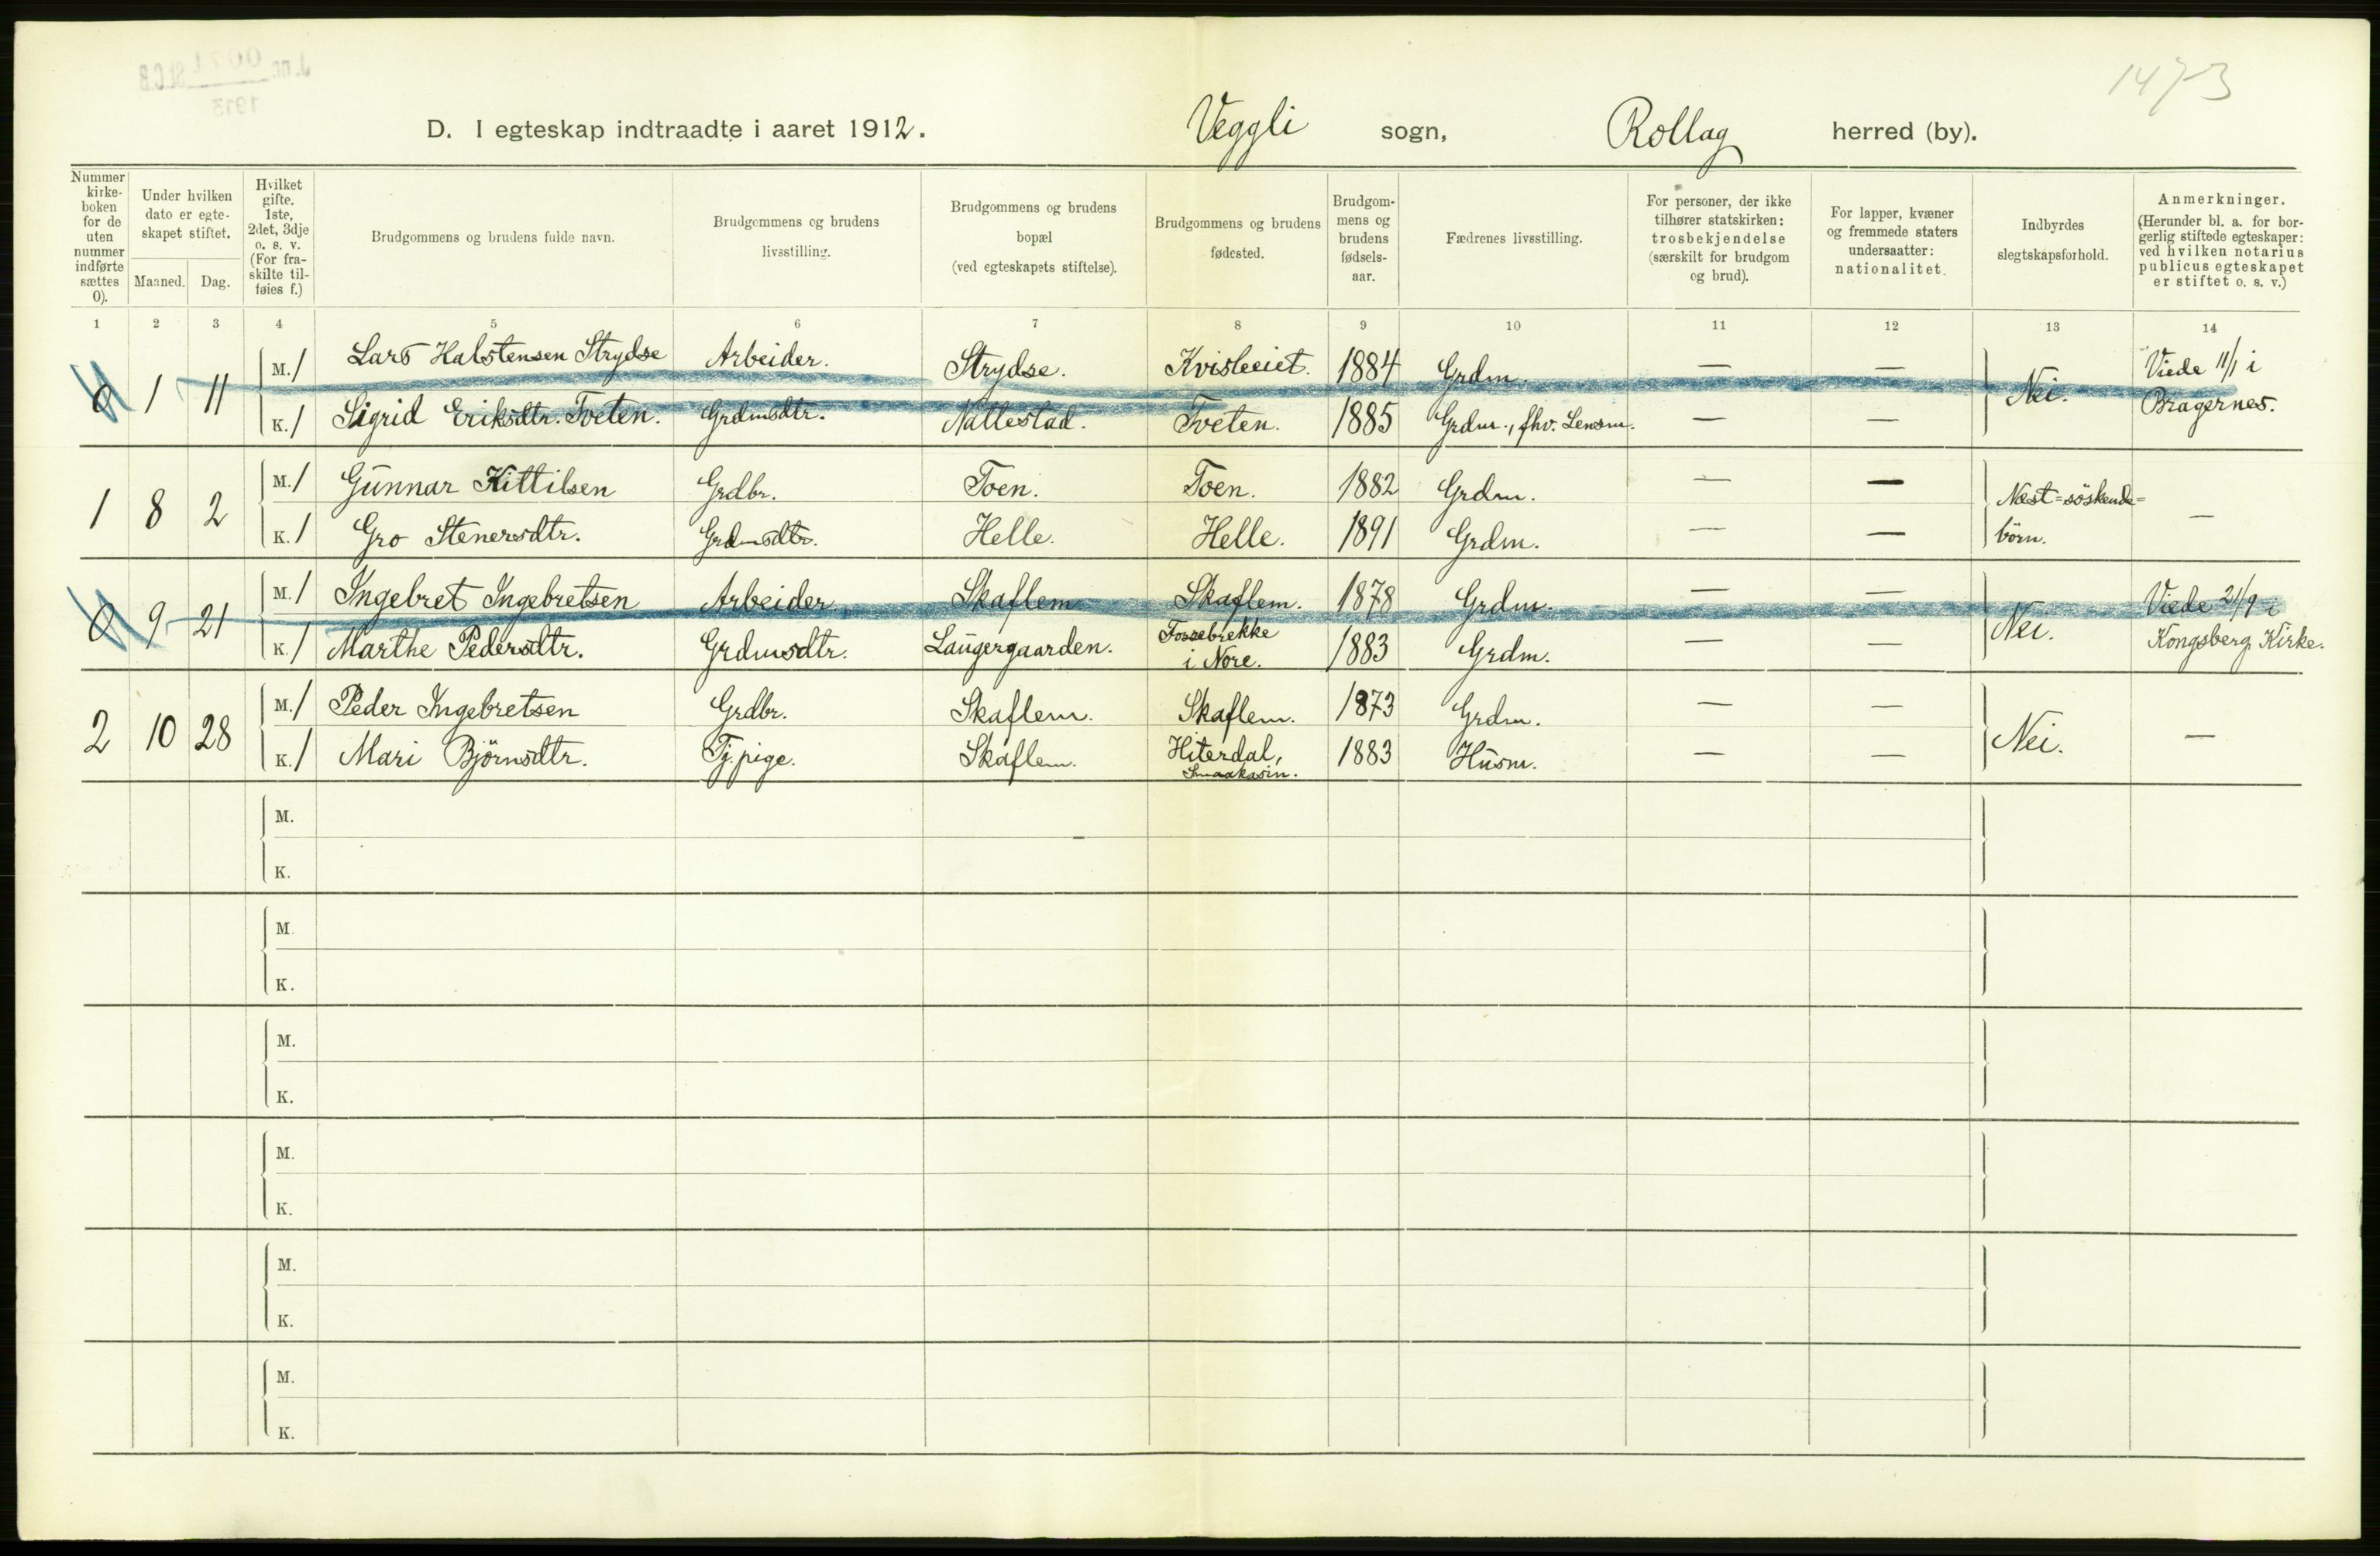 1473
D. I egteskap indtraadte i aaret 1912. Veggli sogn, Rollag herred (by).
Nummer kirke-boken for de uten nummer indførte sættes 0).
Under hvilken dato er egte-skapet stiftet.
Maaned. Dag.
Hvilket gifte. 1ste, 2det, 3dje o. s. v. (For fra-skilte til-føies f.)
Brudgommens og brudens fulde navn.
Brudgommens og brudens livsstilling.
Brudgommens og brudens bopæl (ved egteskapets stiftelse).
Brudgommens og brudens fødested.
Brudgom-mens og brudens fødsels-aar.
Fædrenes livsstilling.
For personer, der ikke tilhører statskirken: trosbekjendelse (særskilt for brudgom og brud).
For lapper, kvæner og fremmede staters undersaatter: nationalitet.
Indbyrdes slegtskapsforhold.
Anmerkninger. (Herunder bl. a. for bor-gerlig stiftede egteskaper: ved hvilken notarius publicus egteskapet er stiftet o. s. v.)
1 2 3 4 5 6 7 8 9 10 11 12 13 14
0 1 11 M. 1 Lars Halstensen Strydse Arbeider. Strydse. Kvisleeiet. 1884 Grdm. — — Nei. Viede 11/1 i
K. 1 Sigrid Eriksdtr. Tveten. Grdmsdtr. Nattestad. Tveten. 1885 Grdm., fhv. Lensm. — — Bragernes.
1 8 2 M. 1 Gunnar Kittilsen Grdbr. Toen. Toen. 1882 Grdm. — — Næst=söskende=
K. 1 Gro Stenersdtr. Grdmsdtr. Helle. Helle. 1891 Grdm. — — börn. —
0 9 21 M. 1 Ingebret Ingebretsen Arbeider. Skaflem Skaflem. 1878 Grdm. — — Nei. Viede 21/9 i
K. 1 Marthe Pedersdtr. Grdmsdtr. Laugergaarden. Fossebrekke i Nore. 1883 Grdm. — — Kongsberg Kirke.
2 10 28 M. 1 Peder Ingebretsen Grdbr. Skaflem. Skaflem. 1873 Grdm. — — Nei. —
K. 1 Mari Björnsdtr. Tj.pige. Skaflem. Hiterdal, 1883 Husm. — —
M.
K.
M.
K.
M.
K.
M.
K.
M.
K.
M.
K.